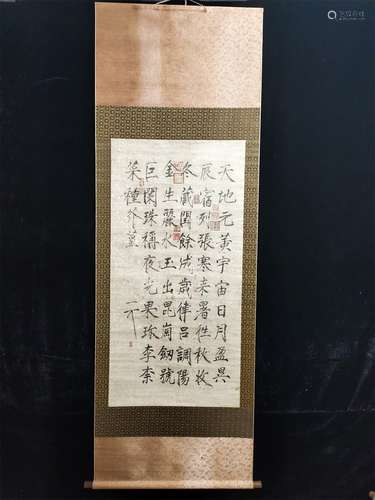 天地元黃宇宙日月盈昃
辰宿列張寒来暑往秋收
冬藏閏餘成歲律吕調陽
金生麗水玉出崑崗劒號
巨闕珠稱夜光果珎李柰
菜種芥薑